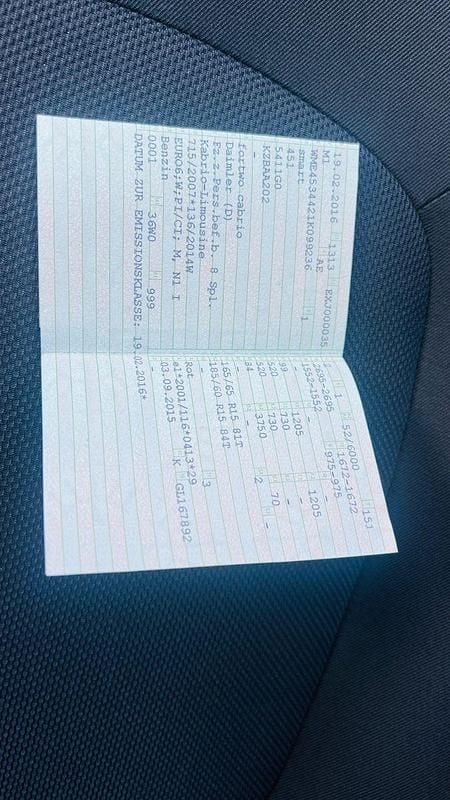 19.02.2016 1313 EXJ000035
M1 AE
WME4534421K099236 1
smart
451
5411G0
KZBAA202
-
fortwo cabrio
Daimler (D)
Fz.z.Pers.bef.b. 8 Spl.
Kabrio-Limousine
715/2007*136/2014W
EURO6;W;PI/CI; M, N1 I
Benzin
0001 36W0 999
DATUM ZUR EMISSIONSKLASSE: 19.02.2016*
1 52/6000 151
2695-2695 1672-1672
1552-1552 975-975
- - -
99 1205 1205
520 730 -
520 730 -
94 3750 70
- 2 -
165/65 R15 81T
185/60 R15 84T
-
- 3
Rot
e1*2001/116*0413*29
03.09.2015 K GL167892
-